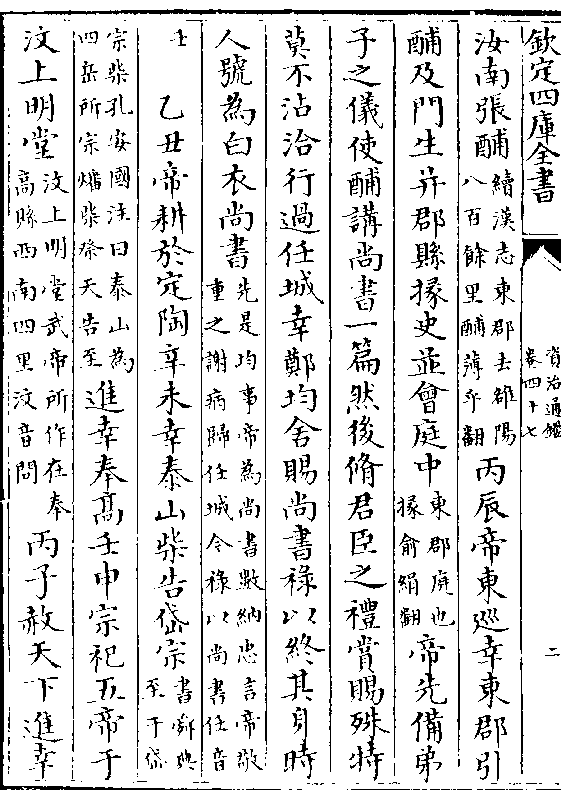 欽定四庫全書
資治通鑑
卷四十七
二
汝南張酺續漢志東郡去雒陽八百餘里酺薄乎翻丙辰帝東巡幸東郡引
酺及門生并郡縣掾史並會庭中東郡庭也掾俞絹翻帝先備弟
子之儀使酺講尚書一篇然後脩君臣之禮賞賜殊特
莫不沾洽行過任城幸鄭均舍賜尚書祿以終其身時
人號為白衣尚書先是均事帝為尚書數納忠言帝敬重之謝病歸任城令祿以尚書任音
壬乙丑帝耕於定陶辛未幸泰山柴告岱宗書舜典至于岱
宗柴孔安國注曰泰山為四岳所宗燔柴祭天告至進幸奉高壬申宗祀五帝于
汶上明堂汶上明堂武帝所作在奉高縣西南四里汶音問丙子赦天下進幸